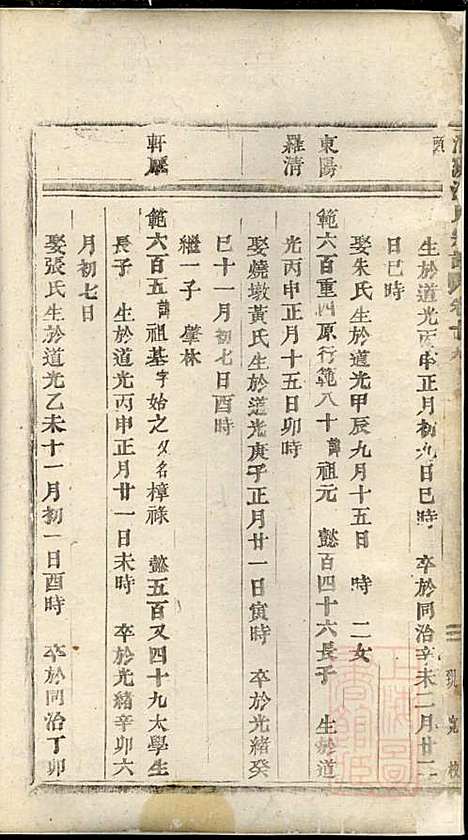 生於道光丙申正月初九日巳時 卒於同治辛未二月廿二
日巳時
娶朱氏生於道光甲辰九月十五日 時 二女
東陽
範六百重四原行範八十諱祖元 懿百四十六長子 生於道
光丙申正月十五日卯時
羅清
娶燒墩黃氏生於道光庚子正月廿一日寅時 卒於光緒癸
巳十一月初七日酉時
繼一子 肇林
軒
範六百五諱祖基字始之又名樟祿 懿五百又四十九太學生
長子 生於道光丙申正月廿一日未時 卒於光緒辛卯六
月初七日
娶張氏生於道光乙未十一月初一日酉時 卒於同治丁卯